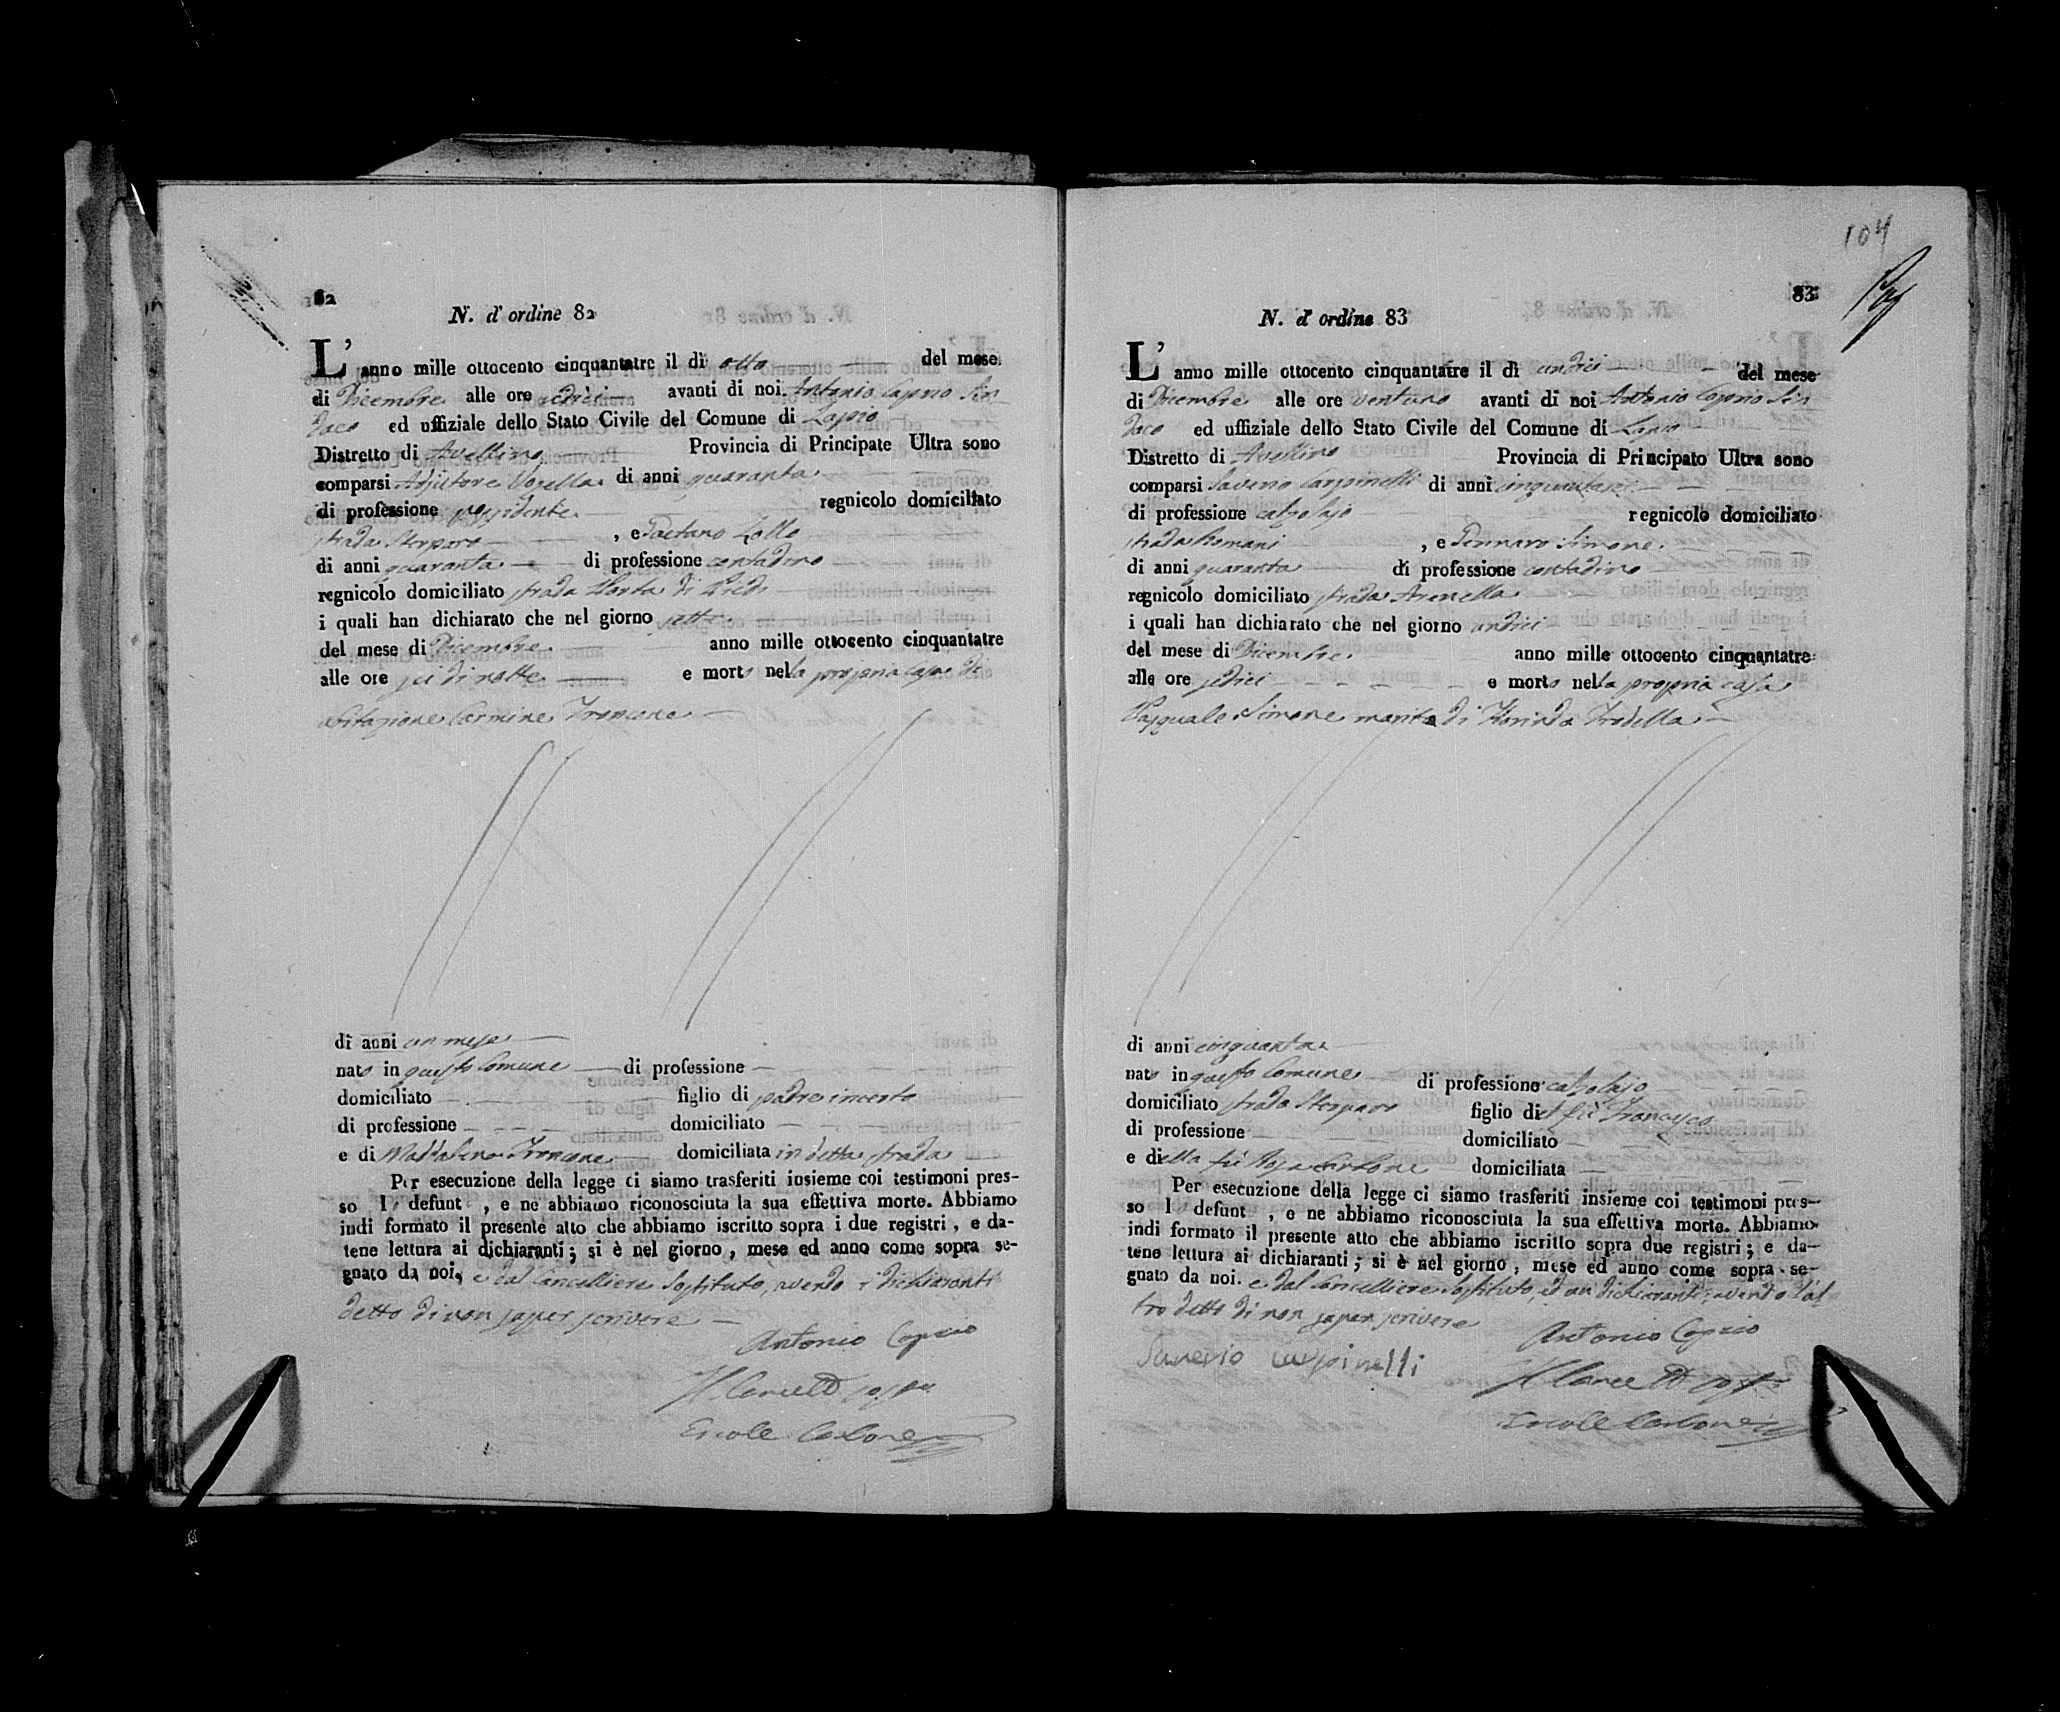 82
N. d' ordine 82
L' anno mille ottocento cinquantatre il dì otto del mese
di Dicembre alle ore avanti di noi Antonio Caprio Sin
daco ed uffiziale dello Stato Civile del Comune di Lapio
Distretto di Avellino Provincia di Principate Ultra sono
comparsi di anni quaranta
di professione possidente regnicolo domiciliato
strada , e Gaetano Lollo
di anni quaranta di professione contadino
regnicolo domiciliato strada di
i quali han dichiarato che nel giorno sette
del mese di Dicembre anno mille ottocento cinquantatre
alle ore sei di notte e morto nella propria casa di
abitazione Carmine Troncone
di anni un mese
nato in questo Comune di professione
domiciliato figlio di padre incerto
di professione domiciliato
e di Maddalena Troncone domiciliata in detta strada
Per esecuzione della legge ci siamo trasferiti insieme coi testimoni pres-
so l defunt , e ne abbiamo riconosciuta la sua effettiva morte. Abbiamo
indi formato il presente atto che abbiamo iscritto sopra i due registri , e da-
tene lettura ai dichiaranti ; si è nel giorno , mese ed anno come sopra se-
gnato da noi, e dal Cancelliere Sostituto, avendo i dichiaranti
detto di non saper scrivere
Antonio Caprio
Ercole Carbone
104
83
N. d' ordine 83
L' anno mille ottocento cinquantatre il dì undici del mese
di Dicembre alle ore ventuno avanti di noi Antonio Caprio Sin
daco ed uffiziale dello Stato Civile del Comune di Lapio
Distretto di Avellino Provincia di Principato Ultra sono
comparsi Saverio Carpinelli di anni cinquanta
di professione calzolajo regnicolo domiciliato
strada Romani , e Gennaro Simone
di anni quaranta di professione contadino
regnicolo domiciliato strada Arenella
i quali han dichiarato che nel giorno undici
del mese di Dicembre anno mille ottocento cinquantatre
alle ore sedici e morto nella propria casa
Pasquale Simone marito di Florinda Trodella
di anni cinquanta
nato in questo Comune di professione calzolajo
domiciliato strada figlio del fù Francesco
di professione domiciliato
e della fù Rosa Carbone domiciliata
Per esecuzione della legge ci siamo trasferiti insieme coi testimoni pres-
so l defunt , e ne abbiamo riconosciuta la sua effettiva morte. Abbiamo
indi formato il presente atto che abbiamo iscritto sopra due registri ; e da-
tene lettura ai dichiaranti ; si è nel giorno , mese ed anno come sopra se-
gnato da noi. e dal Cancelliere Sostituto, ed un dichiarante, avendo l'al
tro detto di non saper scrivere
Antonio Caprio
Saverio Carpinelli
Ercole Carbone